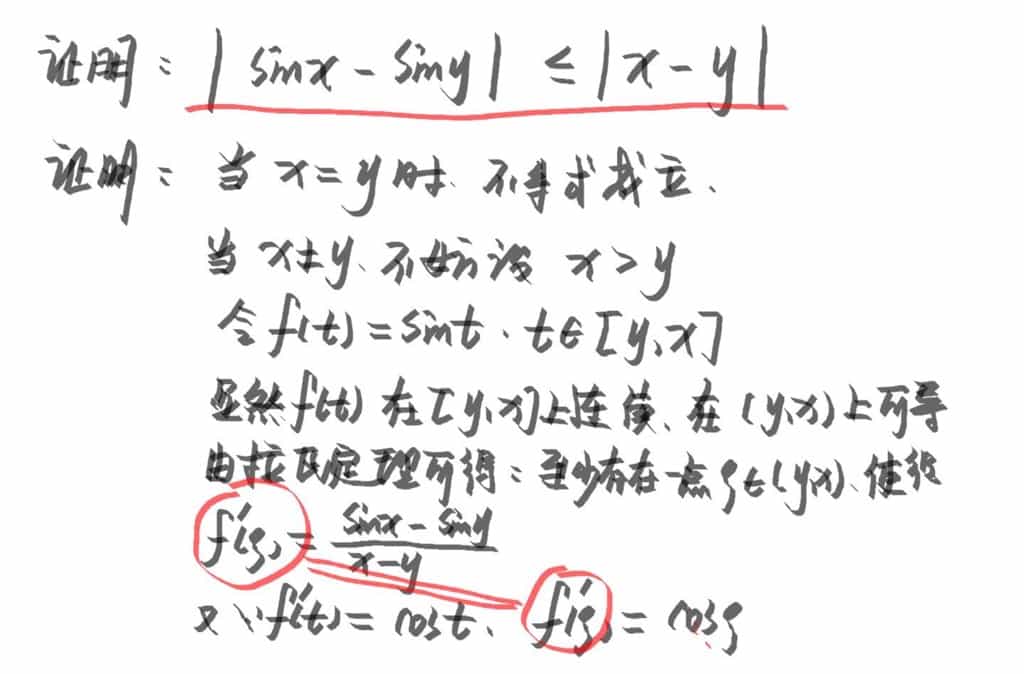 证明：|sinx - siny| ≤ |x - y|
证明：当 x = y 时、不等式成立.
当 x≠y、不妨设 x > y
令 f(t) = sint . t∈[y,x]
显然 f(t) 在[y,x]上连续、在(y,x)上可导
由拉氏定理可得：至少存在一点ξ∈(y,x)、使得
f'(ξ) = \frac{sinx - siny}{x - y}
又∵f'(t) = cost、 f'(ξ) = cosξ